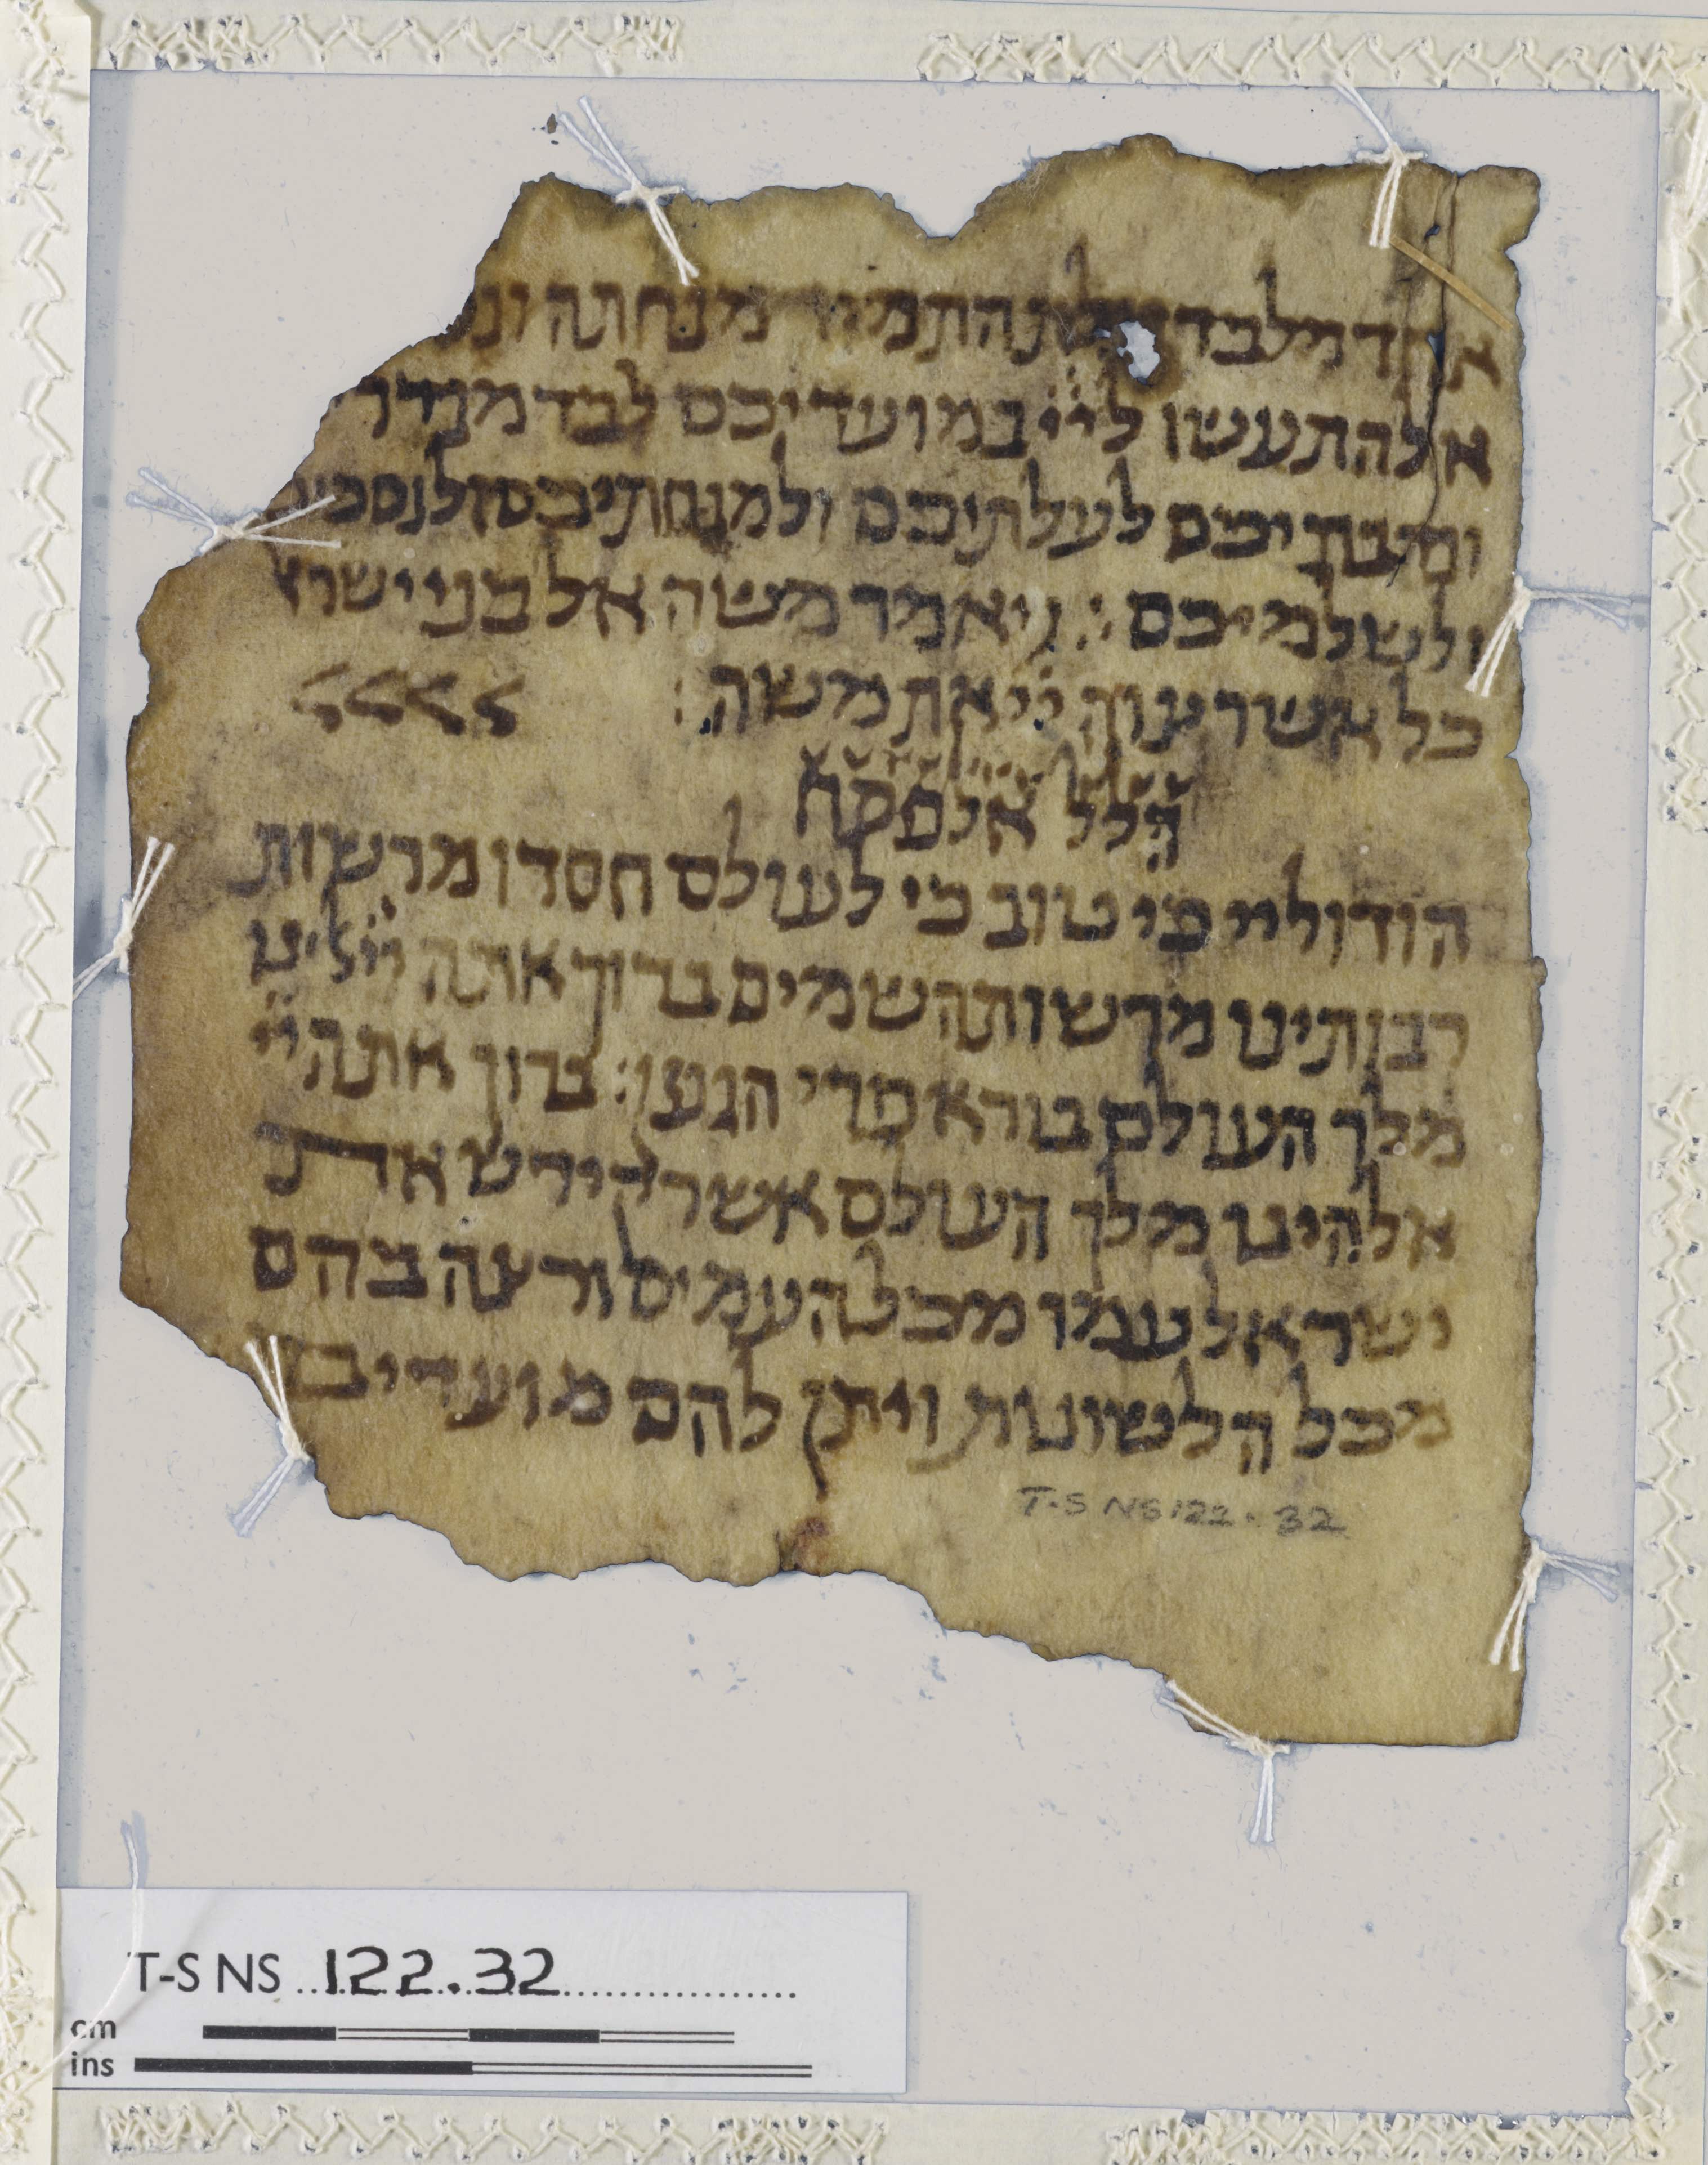 אחד מלבד עולת התמיד מנחתה ונ
אלה תעשו ליי במועדיכם לבד מנדר
ונדבתיכם לעלתיכם ולמנחתיכם ולנסכי
ולשלמיכם : ויאמר משה אל בני ישרא
כל אשר צוה יי את משה :
הלל אלפסח
הודו ליי כי טוב כי לעולם חסדו מרשות
רבותינו מרשות השמים ברוך אתה יי אלינו
מלך העולם בורא פרי הגפן : ברוך אתה יי
אלהינו מלך העולם אשר קידש את
ישראל עמו מכל העמים ורצה בהם
מכל הלשונות ויתן להם מועדים
T-S NS 122.32
T-S NS 122.32
cm
ins